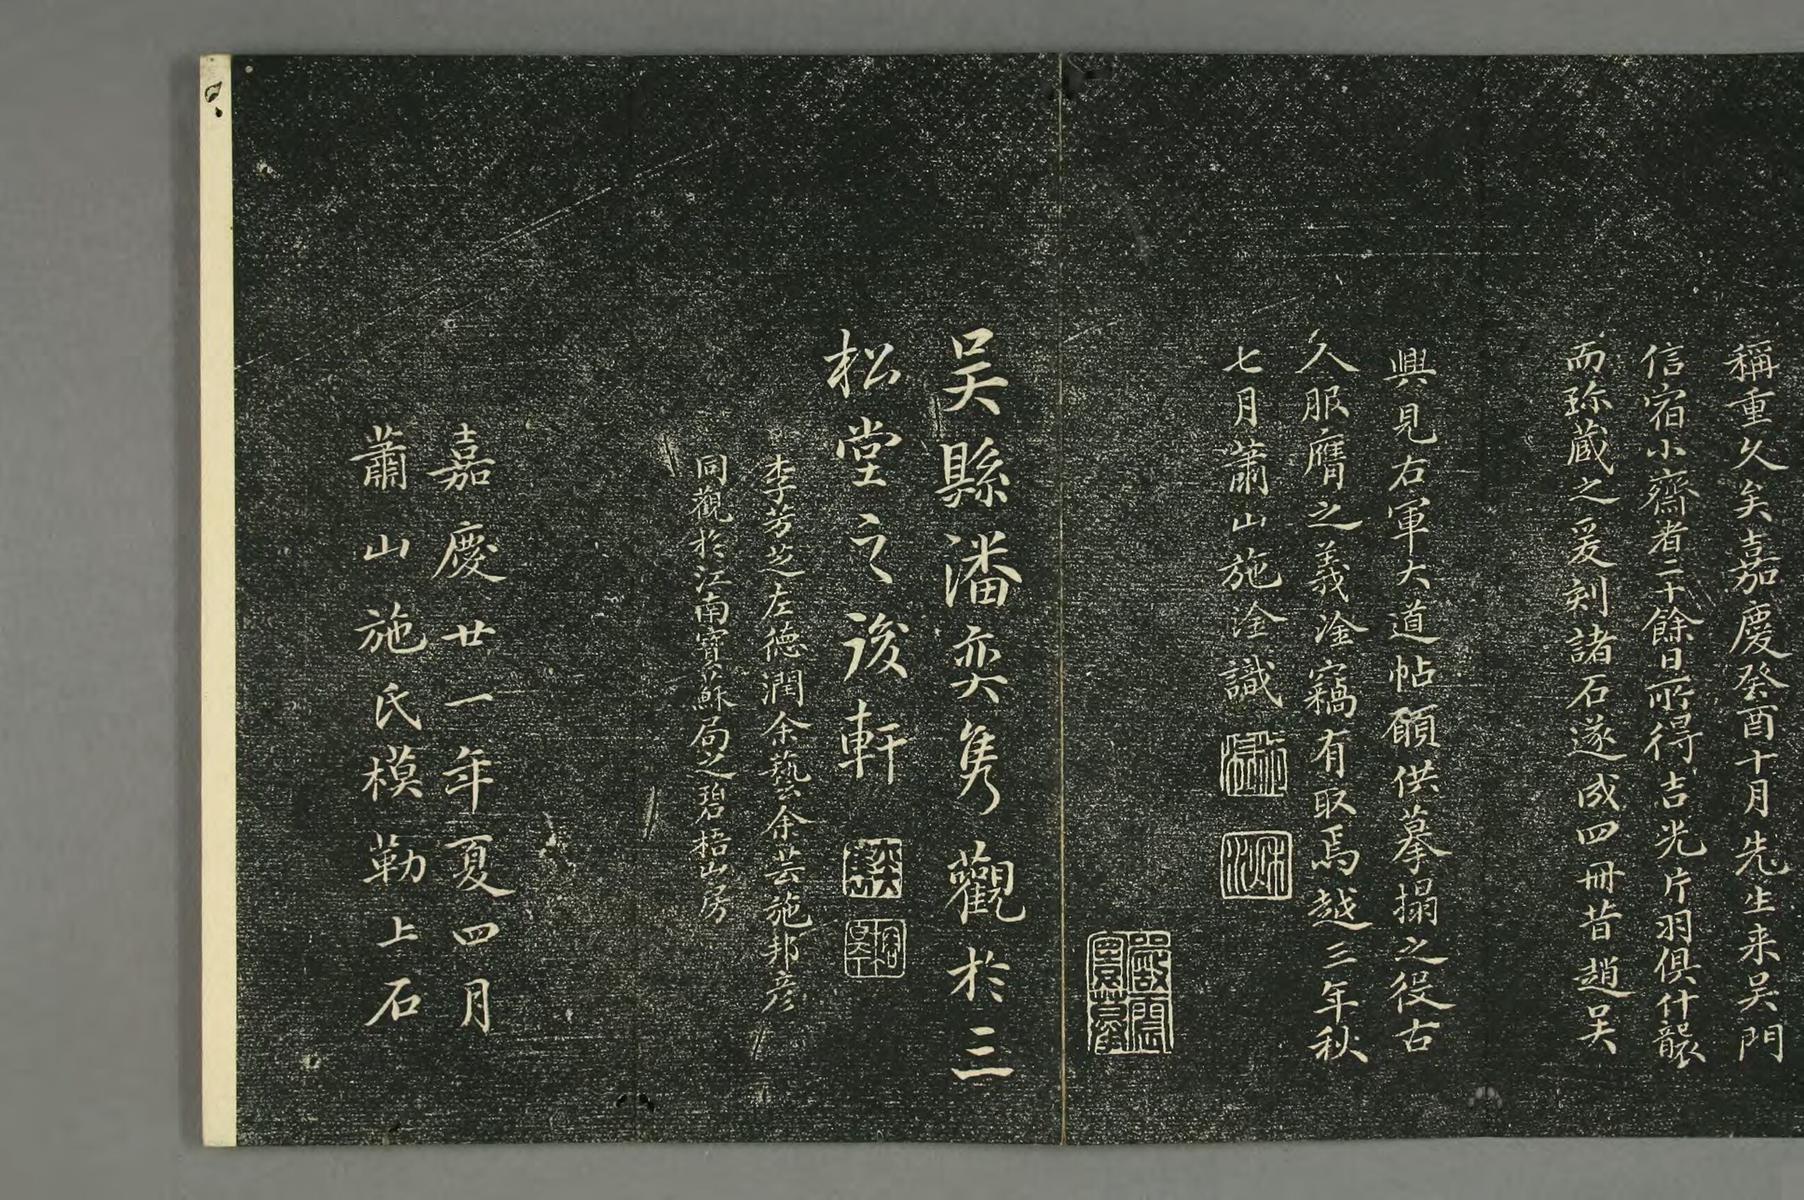 稱重久矣嘉慶癸酉十月先生来吴門
信宿小齋者二十餘日所得吉光片羽俱什襲
而珎蔵之爰刻諸石遂成四冊昔趙吴
興見右軍大道帖願供摹搨之役古
人服膺之義淦竊有取焉越三年秋
七月蕭山施淦識
吴縣潘奕雋觀於三
松堂之後軒
李芳芝左德潤余藝芸余芸施邦彦
同觀於江南寶蘇局之碧梧山房
嘉慶廿一年夏四月
蕭山施氏模勒上石